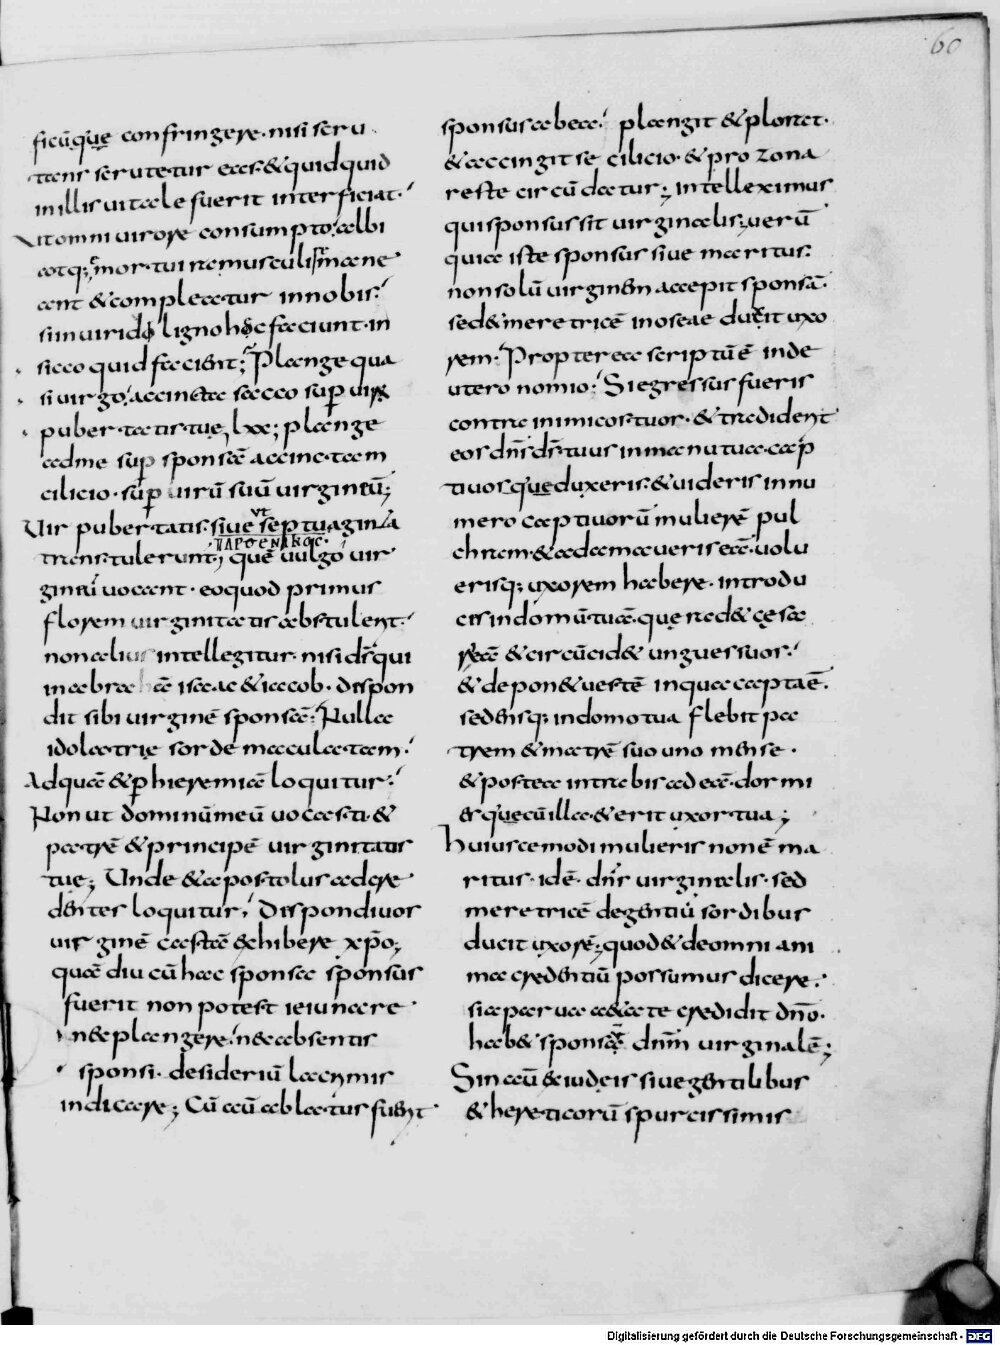 60
ficūq;quę confringere. nisi seru
tans scrutetur eas. & quidquid
in illis uitale fuerit interficiat.
Vt omni uirore consumpto. albi
atq; emortui ramusculi remane
ant & complea tur in nobis.
si in uirido ligno hęc faciunt. in
sicco quid facient; Plange qua
si uirgo. accincta sacco sup uirū
pubertatis. tuę, lxx; plange
ad me sup sponsā accinctam
cilicio. sup uirū suū uirginalē;
Vir pubertatis. siue ut septuaginta
transtulerunt, ΠΑΡΘΕΝΙΚΟC. quē uulgo uir
ginalē uocant. eo quod primus
florem uirginitatis abstulerit.
non alius intellegitur. nisi dš qui
in abraham isaac & iacob. dispon
dit sibi uirginē sponsā. Nulla
idolatrię sorde maculatam.
Ad quā & p hieremiā loquitur.
Non ut dominū meū uocasti. &
patrē & principē uirginitatis
tuę; Unde & apostolus ad cre
dentes loquitur, Dispondi uos
uirginē castā exhibere xp̄o;
quā diu cū hac sponsa sponsus
fuerit non potest ieiunare
nec plangere. nec absentis
sponsi. desideriū lacrymis
indicare; Cū aū ablatus fuerit
sponsus ab ea. plangit & plorat.
& accingit se cilicio. & pro zona
reste circūdatur; intelleximus
qui sponsus sit uirginalis; uerū
quia iste sponsus siue maritus.
non solū uirginem accepit sponsā.
sed & meretricē in oseae ducit uxo
rem. Propterea scriptū ē in de
uteronomio. Si egressus fueris
contra inimicos tuos. & tradiderit
eos dn̄s dš tuus in manu tua. cap
tiuosque duxeris. & uideris in nu
mero captiuorū mulierē pul
chram. & adamaueris eā. uolu
erisq; uxorem habere. introdu
cis in domū tuā. quę rad& cęsa
riē & circūcid& ungues suos.
& depon& uestē in qua capta ē.
sedensq; in domo tua flebit pa
trem & matrē suo uno mense.
& postea intrabis ad eā. dormi
esque cū illa. & erit uxor tua;
huiuscemodi mulieris non ē ma
ritus. idē. dn̄s uirginalis. sed
meretricē de gentiū sordibus
ducit uxorē; quod & de omni ani
ma credentiū possumus dicere.
si a parua aetate credidit dn̄o.
hab& sponsū dn̄m uirginalē;
Sin aū & iudeis siue gentilibus
& hereticorū spurcissimis
Digitalisierung gefördert durch die Deutsche Forschungsgemeinschaft - DFG